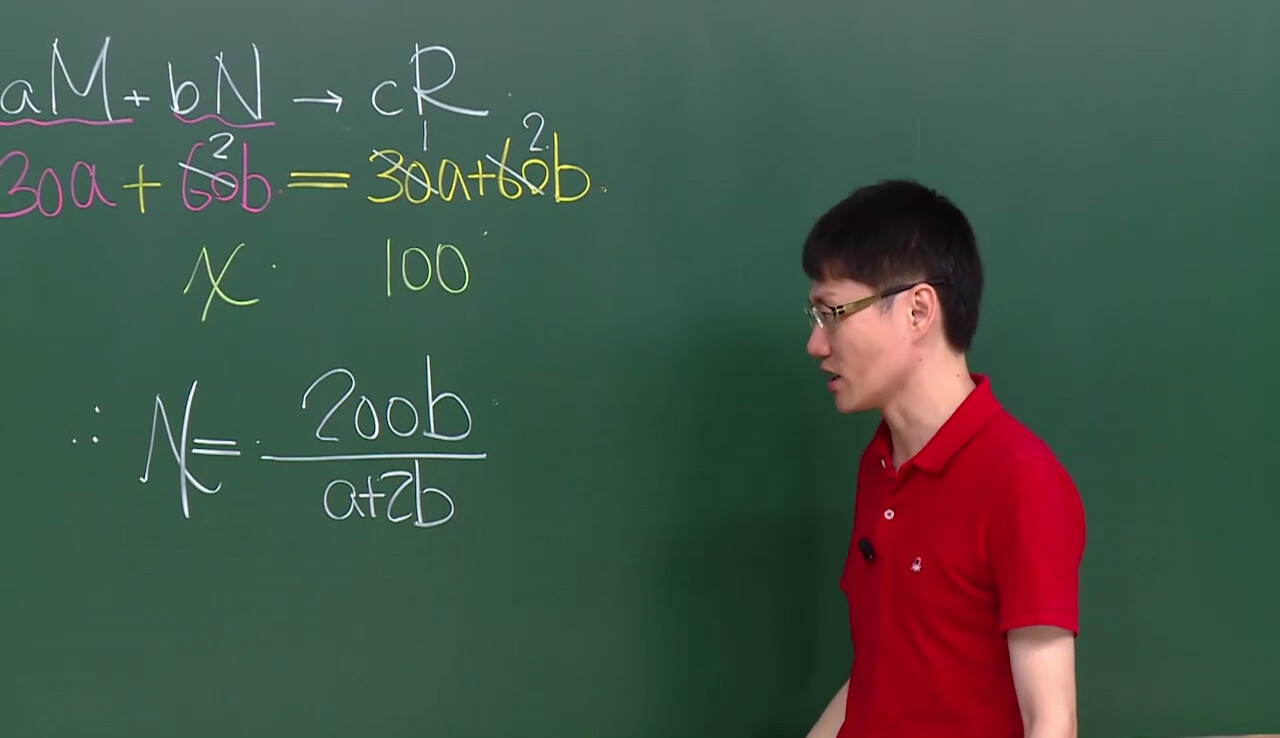 aM + bN → cR
2 1 2
30a + 60b = 30a+60b
x 100
∴ x = 200b
a+2b